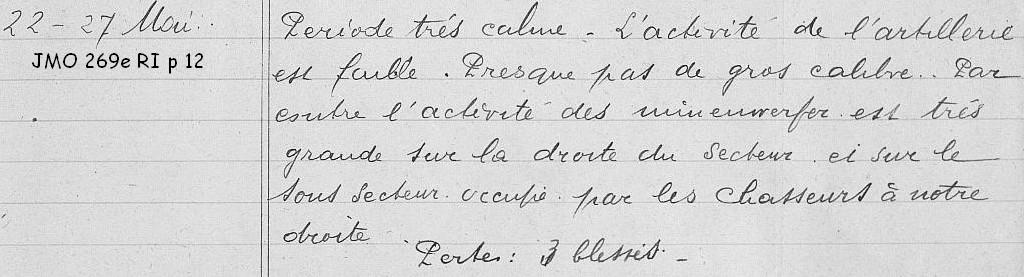 22 - 27 Mai.
JMO 269e RI p 12
Période trés calme - L'activité de l'artillerie
est faible. Presque pas de gros calibre.. Par
contre l'activité des minenwerfer est trés
grande sur la droite du Secteur et sur le
sous secteur occupé par les Chasseurs à notre
droite.
Pertes: 3 blessés -